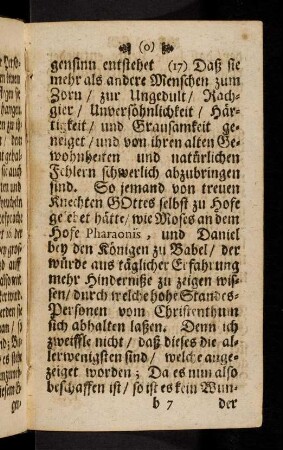 (0)
gensinn entstehet (17) Daß sie
mehr als andere Menschen zum
Zorn / zur Ungedult / Rach-
gier / Unversöhnlichkeit / Här-
tigkeit / und Grausamkeit ge-
neiget / und von ihren alten Ge-
wohnheiten und natürlichen
Fehlern schwerlich abzubringen
sind. So jemand von treuen
Knechten GOttes selbst zu Hofe
gelebet hätte / wie Moses an dem
Hofe Pharaonis, und Daniel
bey den Königen zu Babel / der
würde aus täglicher Erfahrung
mehr Hinderniße zu zeigen wis-
sen / durch welche hohe Standes-
Personen vom Christenthum
sich abhalten laßen. Denn ich
zweiffle nicht / daß dieses die al-
lerwenigsten sind / welche ange-
zeiget worden; Da es nun also
beschaffen ist / so ist es kein Wun-
b 7 der